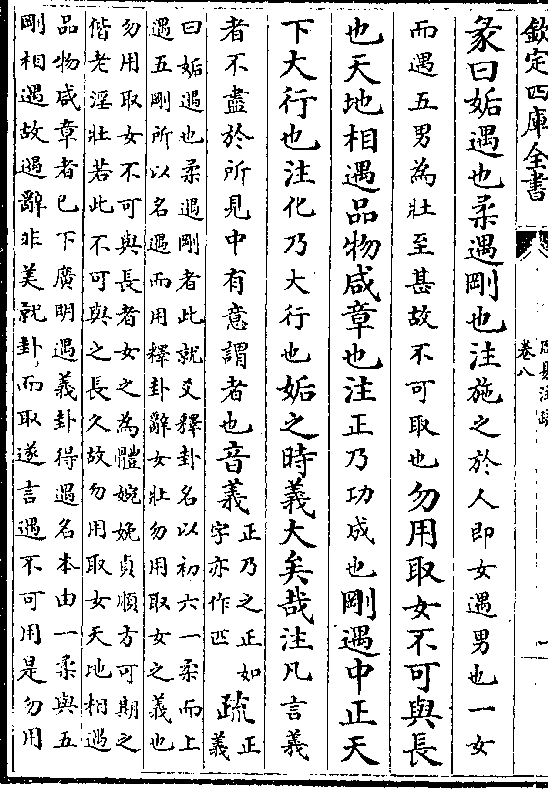 欽定四庫全書
卷八
彖曰姤遇也柔遇剛也注施之於人即女遇男也一女
而遇五男為壯至甚故不可取也勿用取女不可與長
也天地相遇品物咸章也注正乃功成也剛遇中正天
下大行也注化乃大行也姤之時義大矣哉注凡言義
者不盡於所見中有意謂者也音義
正乃之正如
字亦作匹
疏
正
義
曰姤遇也柔遇剛者此就爻釋卦名以初六一柔而上
遇五剛所以名遇而用釋卦辭女壯勿用取女之義也
勿用取女不可與長者女之為體婉娩貞順方可期之
偕老淫壯若此不可與之長久故勿用取女天地相遇
品物咸章者已下廣明遇義卦得遇名本由一柔與五
剛相遇故遇辭非美就卦而取遂言遇不可用是勿用